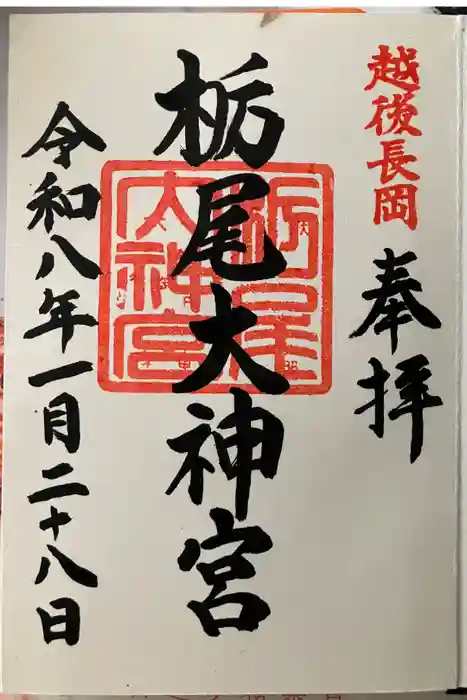 越後長岡
奉拝
栃尾大神宮
栃尾
大神宮
令和八年一月二十八日